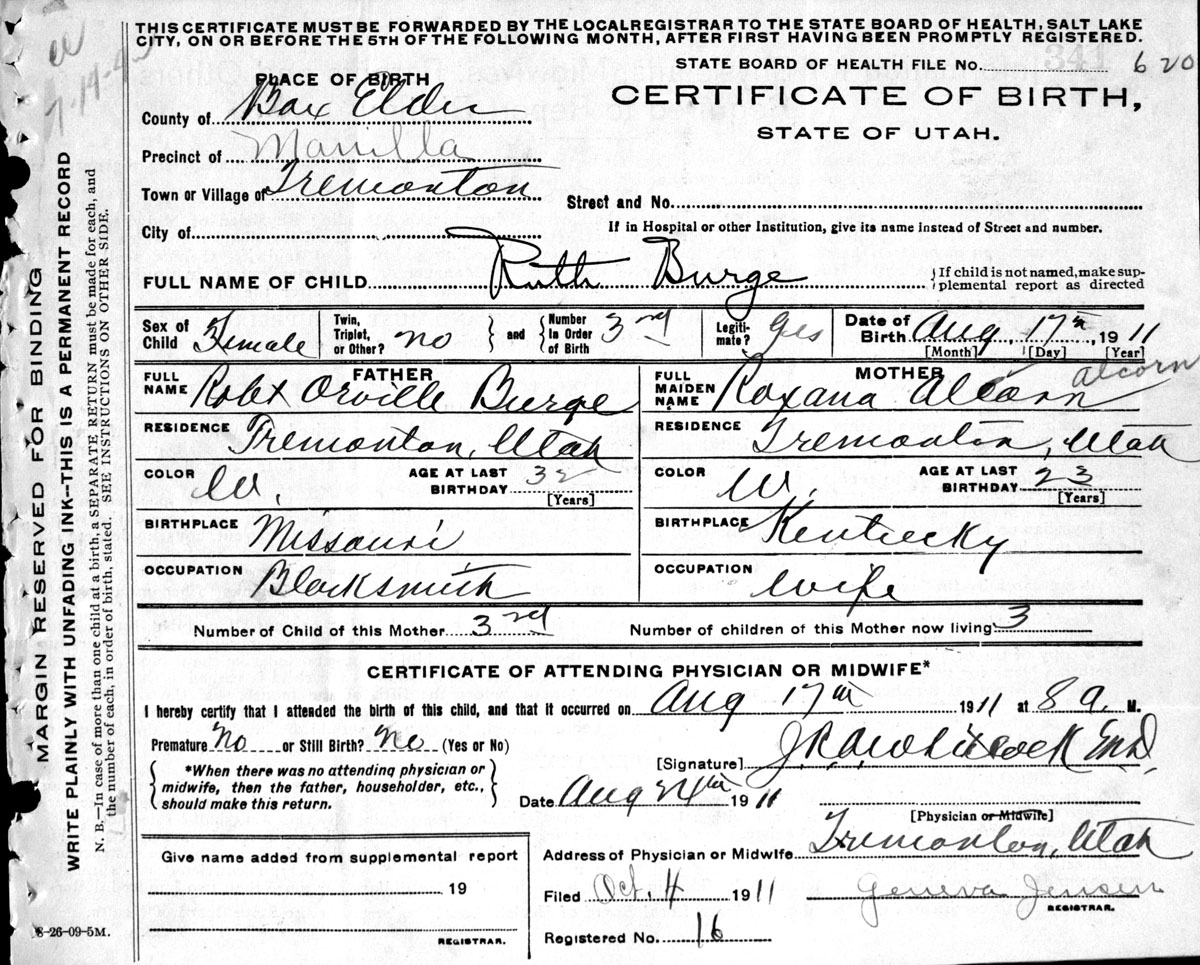 THIS CERTIFICATE MUST BE FORWARDED BY THE LOCAL REGISTRAR TO THE STATE BOARD OF HEALTH, SALT LAKE
CITY, ON OR BEFORE THE 5TH OF THE FOLLOWING MONTH, AFTER FIRST HAVING BEEN PROMPTLY REGISTERED.
STATE BOARD OF HEALTH FILE No. 341 620
PLACE OF BIRTH
CERTIFICATE OF BIRTH,
STATE OF UTAH.
County of Box Elder
Precinct of Manilla
Town or Village of Tremonton
Street and No.
City of
If in Hospital or other Institution, give its name instead of Street and number.
FULL NAME OF CHILD Ruth Burge
{If child is not named, make sup-
plemental report as directed
Sex of Child Female
Twin, Triplet, or Other? no } and { Number In Order of Birth 3rd
Legiti-mate? yes
Date of Birth Aug 17th, 1911
[Month] [Day] [Year]
FATHER
FULL NAME Robt Orville Burge
RESIDENCE Tremonton, Utah
COLOR W. AGE AT LAST BIRTHDAY 32
[Years]
BIRTHPLACE Missouri
OCCUPATION Blacksmith
MOTHER
FULL MAIDEN NAME Roxana Alcorn alcorn
RESIDENCE Tremonton, Utah
COLOR W. AGE AT LAST BIRTHDAY 23
[Years]
BIRTHPLACE Kentucky
OCCUPATION wife
Number of Child of this Mother 3rd Number of children of this Mother now living 3
CERTIFICATE OF ATTENDING PHYSICIAN OR MIDWIFE*
I hereby certify that I attended the birth of this child, and that it occurred on Aug 17th 1911 at 8 a. M.
Premature No or Still Birth? No (Yes or No)
{ *When there was no attending physician or
midwife, then the father, householder, etc.,
should make this return. }
[Signature]
Date Aug 24th 1911
[Physician or Midwife]
Address of Physician or Midwife Tremonton, Utah
Give name added from supplemental report
19
REGISTRAR.
Filed Oct. 4 1911 Geneva Jensen
REGISTRAR.
Registered No. 16
MARGIN RESERVED FOR BINDING
WRITE PLAINLY WITH UNFADING INK--THIS IS A PERMANENT RECORD
N. B.—In case of more than one child at a birth, a SEPARATE RETURN must be made for each, and
the number of each, in order of birth, stated. SEE INSTRUCTIONS ON OTHER SIDE.
8-26-09-5M.